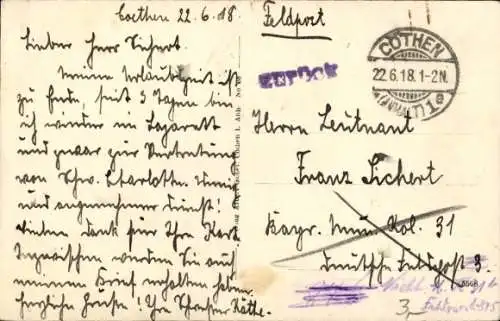 Coethen 22.6.18.
Lieber Herr Sichert.
Meine Urlaubszeit ist
zu Ende, seit 3 Tagen bin
ich wieder im Lazarett
und zwar zur Vertretung
von Schw. Charlotte.
und angenehmer Dienst!
Vielen Dank für Ihre Karte
Inzwischen werden Sie auch
meinen Brief erhalten haben.
Herzliche Grüße! Ihre Schwester Käthe.
Feldpost
zurück
CÖTHEN
22.6.18.1-2N.
(ANHALT) 1e
Herrn Leutnant
Franz Sichert
Bayr. Mun. Kol. 31
Deutsche Feldpost 3.
3,